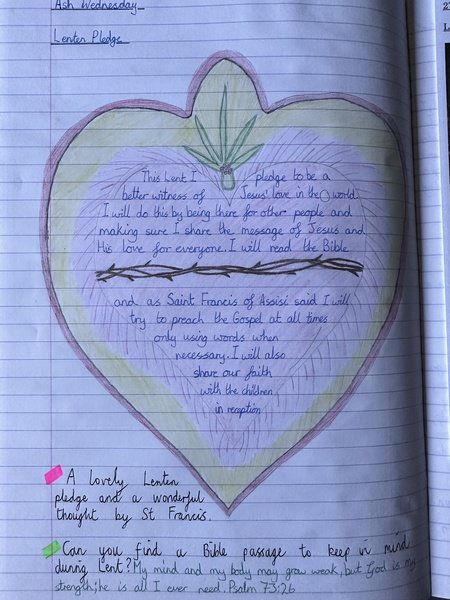 Ash Wednesday
Lenten Pledge
This Lent I pledge to be a
better witness of Jesus' love in the world.
I will do this by being there for other people and
making sure I share the message of Jesus and
His love for everyone. I will read the Bible
and as Saint Francis of Assisi said I will
try to preach the Gospel at all times
only using words when
necessary. I will also
share our faith
with the children
in reception
A lovely Lenten
pledge and a wonderful
thought by St Francis.
Can you find a Bible passage to keep in mind
during Lent? My mind and my body may grow weak, but God is my
strength; he is all I ever need. Psalm 73:26